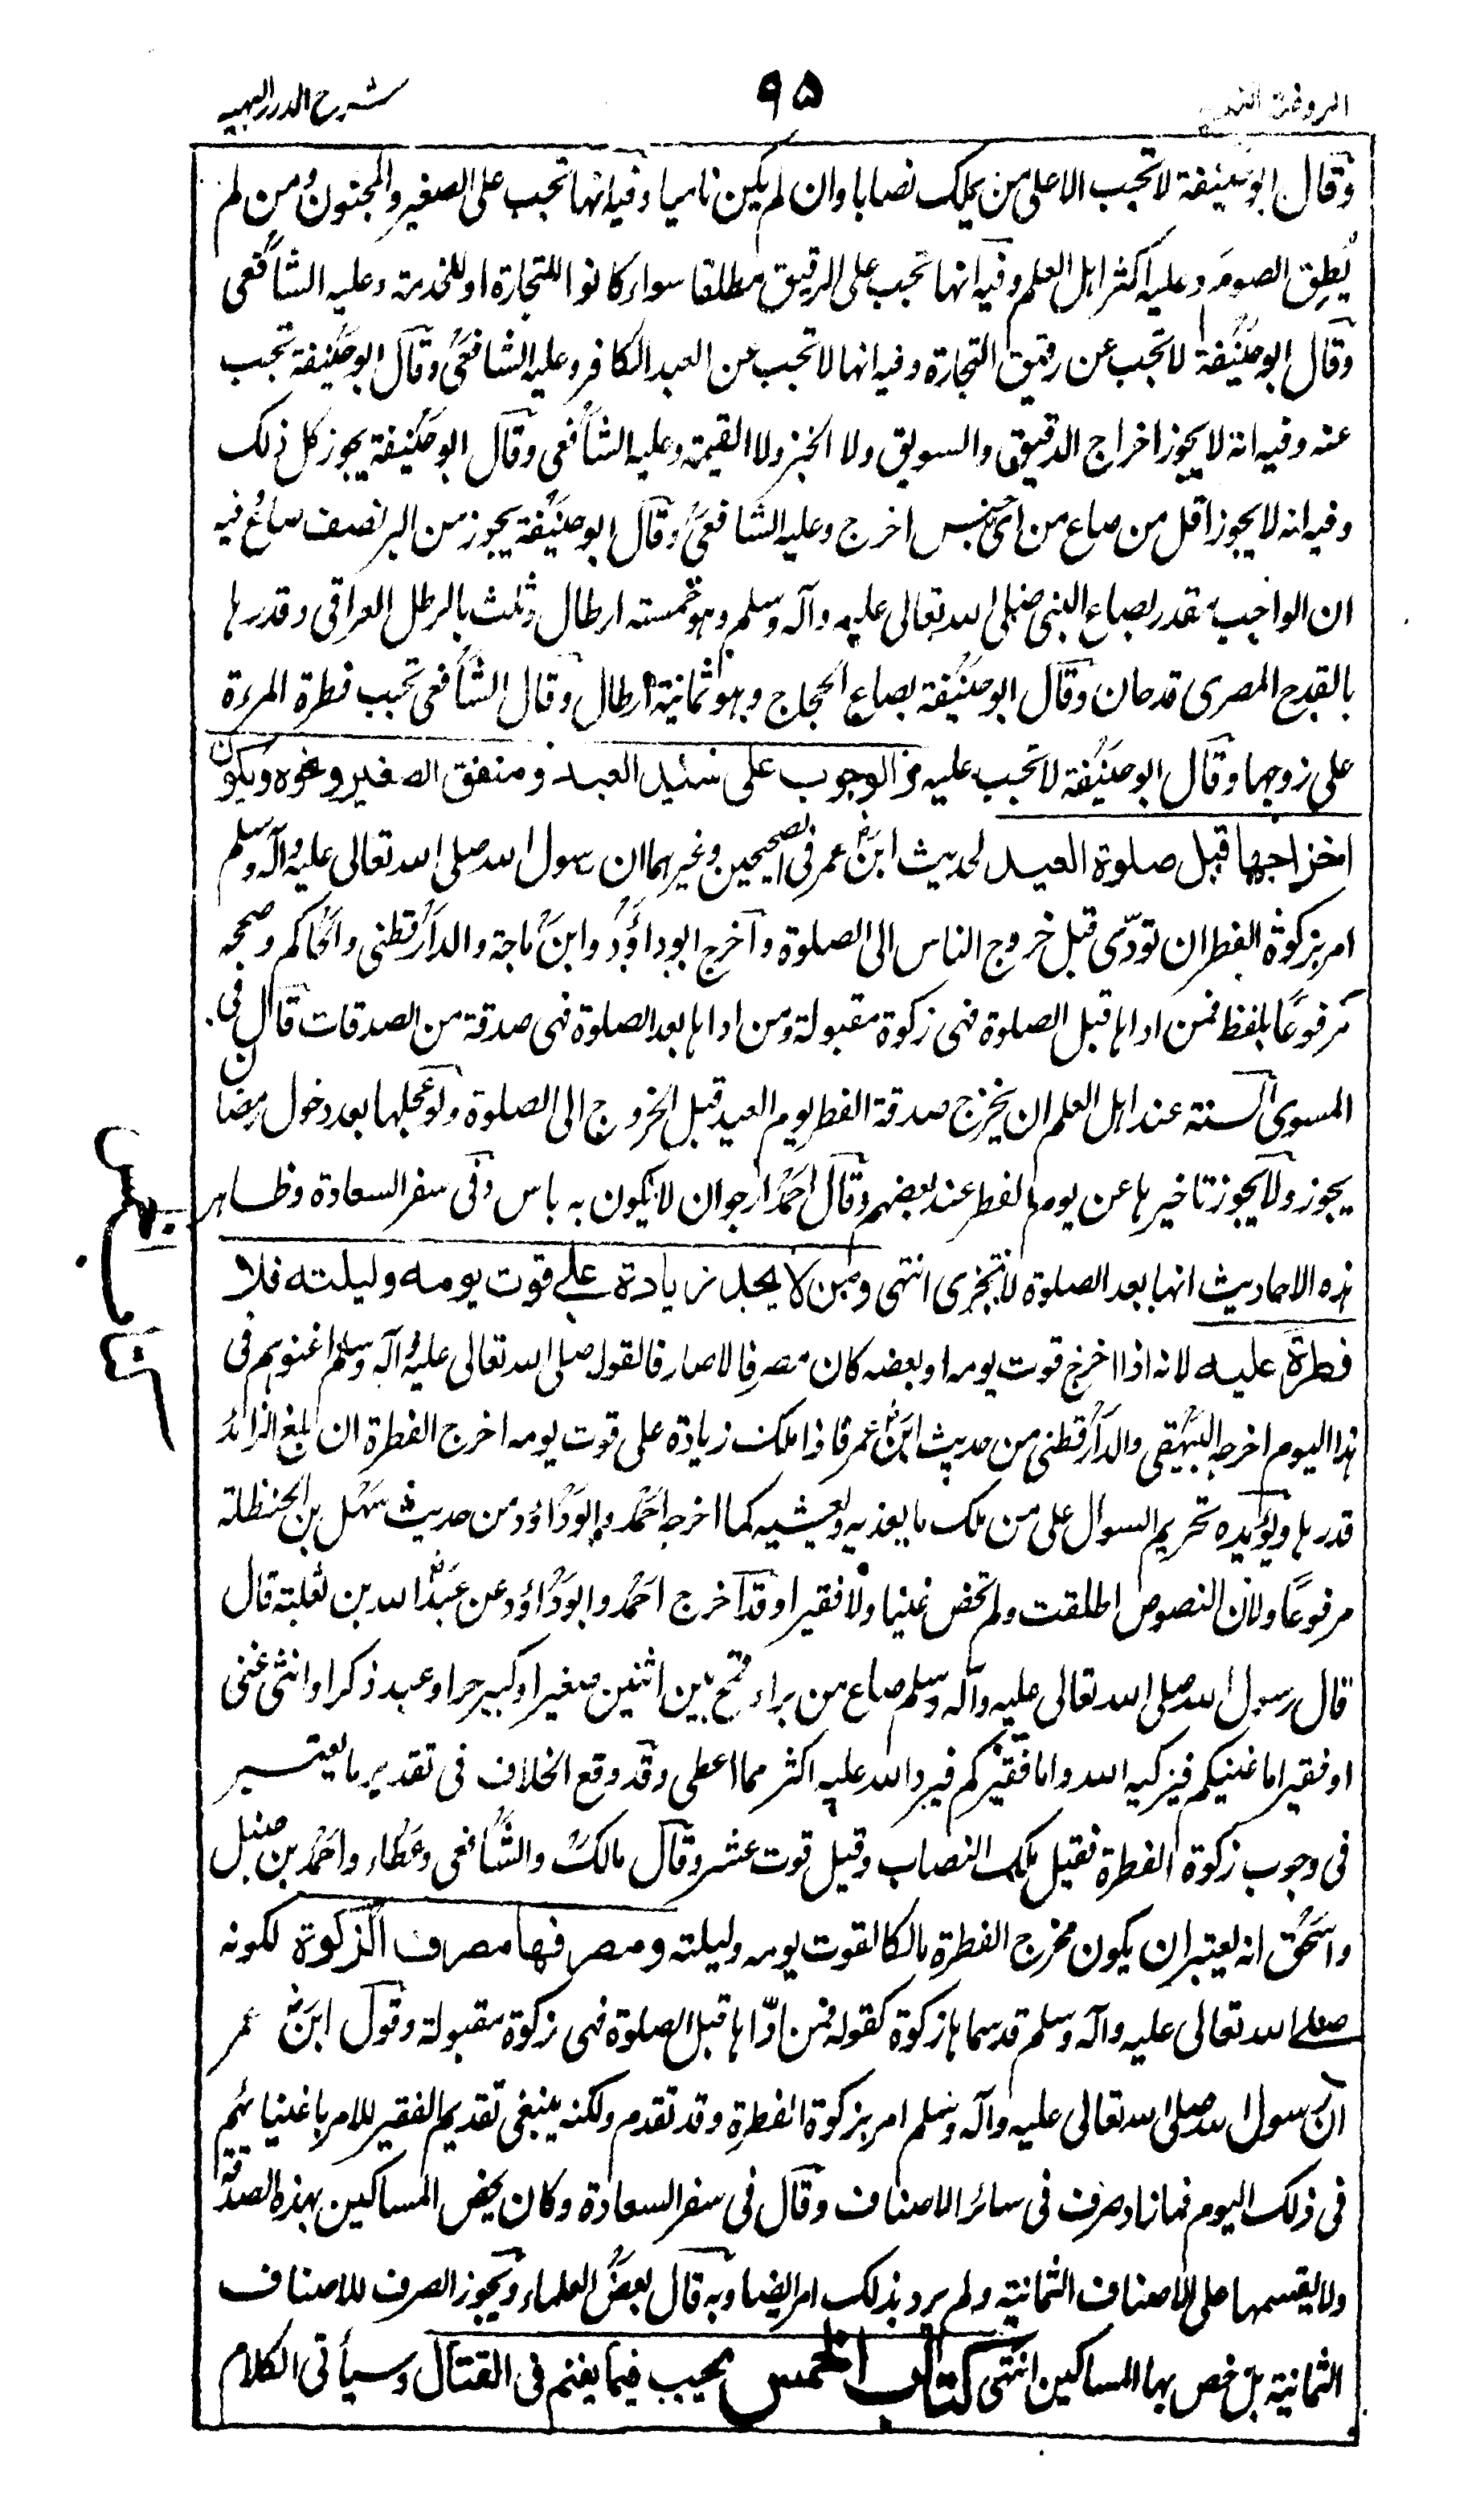 الروضة الندية ٩٥ شرح الدرر البهية
وقال ابو حنيفة لا تجب الا على من يملك نصابا وان لم يكن ناميا وفيه انها تجب على الصغير والمجنون ومن لم
يُطِق الصوم وعليه اكثر اهل العلم وفيه انها تجب على الرقيق مطلقا سواء كانوا للتجارة او للخدمة وعليه الشافعى
وقال ابو حنيفة لا تجب عن رقيق التجارة وفيه انها لا تجب عن العبد الكافر وعليه الشافعى وقال ابو حنيفة تجب
عنه وفيه انه لا يجوز اخراج الدقيق والسويق ولا الخبز ولا القيمة وعليه الشافعى وقال ابو حنيفة يجوز كل ذلك
وفيه انه لا يجوز اقل من صاع من اى جنس اخرج وعليه الشافعى وقال ابو حنيفة يجوز من البر نصف صاع وفيه
ان الواجب مقدر بصاع النبى صلى الله تعالى عليه وآله وسلم وهو خمسة ارطال وثلث بالرطل العراقى وقدرها
بالقدح المصرى قدحان وقال ابو حنيفة بصاع الحجاج وهو ثمانية ارطال وقال الشافعى تجب فطرة المرءة
على زوجها وقال ابو حنيفة لا تجب عليه و الوجوب على سيد العبد ومنفق الصغير ونحوه ويكون
اخراجها قبل صلوة العيد لحديث ابن عمر فى الصحيحين وغيرهما ان رسول الله صلى الله تعالى عليه وآله وسلم
امر بزكوة الفطر ان تودّى قبل خروج الناس الى الصلوة واخرج ابو داؤد وابن ماجة والدارقطنى والحاكم وصححه
مرفوعًا بلفظ فمن اداها قبل الصلوة فهى زكوة مقبولة ومن اداها بعد الصلوة فهى صدقة من الصدقات قال فى
المسوى السنة عند اهل العلم ان يخرج صدقة الفطر يوم العيد قبل الخروج الى الصلوة ولو عجلها بعد دخول رمضان
يجوز ولا يجوز تاخيرها عن يوم الفطر عند بعضهم وقال احمد ارجو ان لا يكون به باس وفى سفر السعادة وظاهر
هذه الاحاديث انها بعد الصلوة لا تجزى انتهى ومن لا يجد زيادة على قوت يومه وليلته فلا
فطرة عليه لانه اذا اخرج قوت يومه او بعضه كان مصرفا لا صارفا لقول صلى الله تعالى عليه وآله وسلم اغنوهم فى
هذا اليوم اخرجه البيهقى والدارقطنى من حديث ابن عمر فاذا ملك زيادة على قوت يومه اخرج الفطرة ان بلغ الزائد
قدرها ويؤيده تحريم السوال على من ملك ما يغذيه ويعشيه كما اخرجه احمد وابو داؤد من حديث سهل بن الحنظلة
مرفوعًا ولان النصوص اطلقت ولم تخص غنيا ولا فقيرا وقد اخرج احمد وابو داؤد عن عبد الله بن ثعلبة قال
قال رسول الله صلى الله تعالى عليه وآله وسلم صاع من بر او قمح بين اثنين صغير او كبير حر او عبد ذكر او انثى غنى
او فقير اما غنيكم فيزكيه الله واما فقيركم فيرد الله عليه اكثر مما اعطى وقد وقع الخلاف فى تقدير ما يعتبر
فى وجوب زكوة الفطرة فقيل ملك النصاب وقيل قوت عشر وقال مالك والشافعى وعطاء واحمد بن حنبل
واسحٰق انه يعتبر ان يكون مخرج الفطرة مالكا لقوت يومه وليلته ومصرفها مصرف الزكوة لكونه
صلى الله تعالى عليه وآله وسلم قد سماها زكوة كقوله فمن ادّاها قبل الصلوة فهى زكوة مقبولة وقول ابن عمر
ان رسول الله صلى الله تعالى عليه وآله وسلم امر بزكوة الفطرة وقد تقدم ولكنه ينبغى تقديم الفقير للامر باغنيائهم
فى ذلك اليوم فما زاد صرف فى سائر الاصناف وقال فى سفر السعادة وكان يخص المساكين بهذه الصدقة
ولا يقسمها على الاصناف الثمانية ولم يرد بذلك امر ايضا وبه قال بعض العلماء ويجوز الصرف للاصناف
الثمانية بل خص بها المساكين انتهى كتاب الخمس يجب فيما يغنم فى القتال وسيأتى الكلام